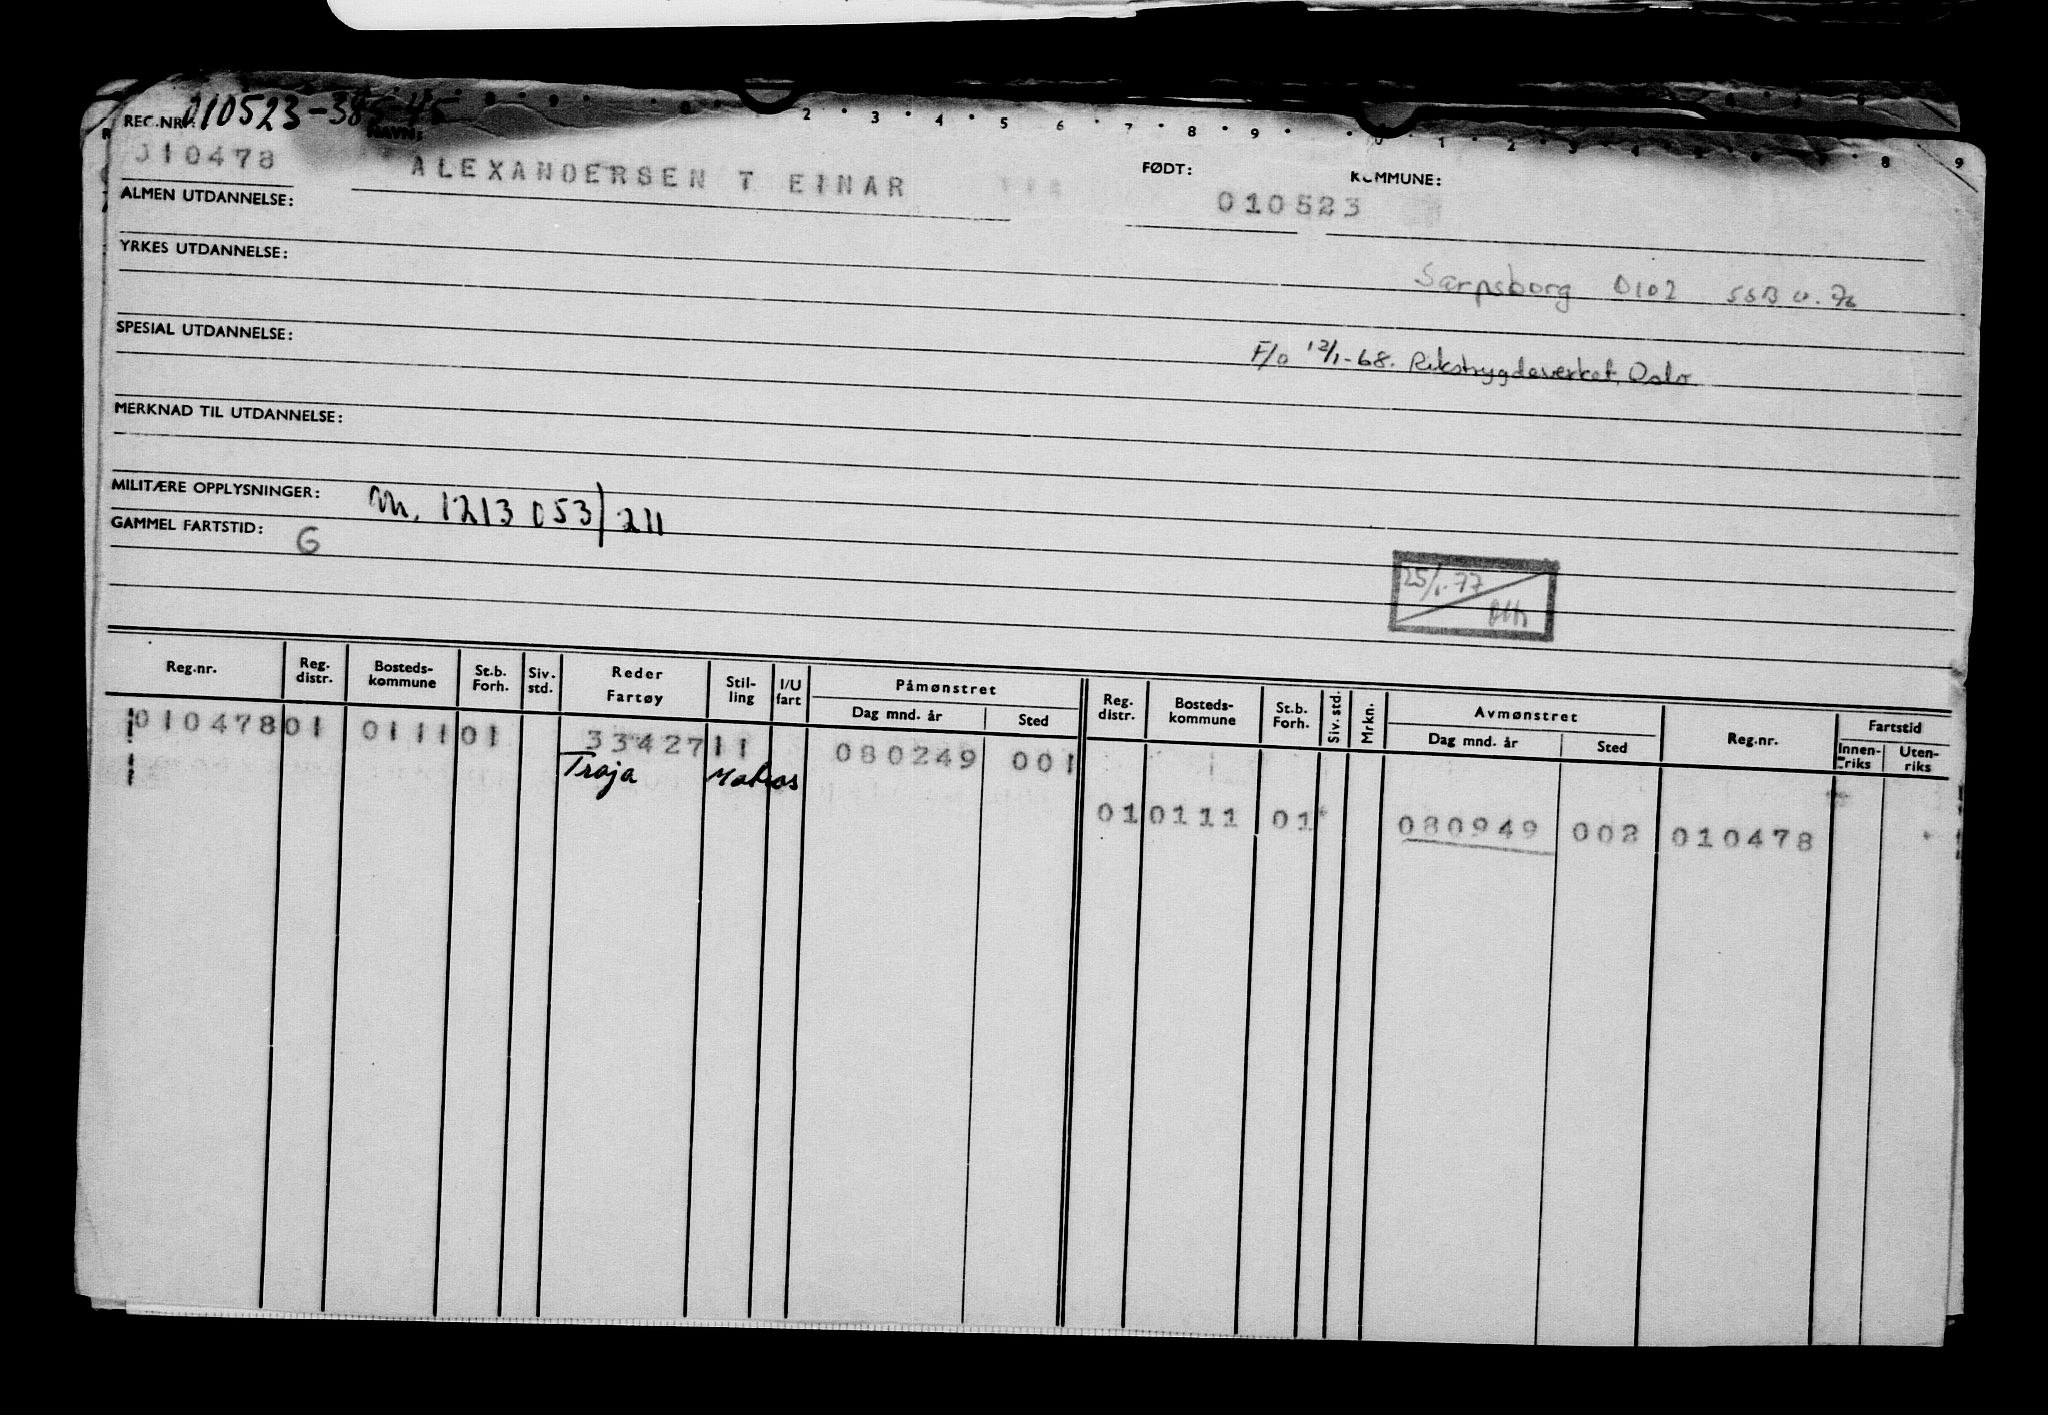 REG.NR.: 010523-385-45
NAVN:
2 · 3 · 4 · 5 6 · 7 · 8 · 9 · 0 1 · 2 · 3 4 5 6 7 · 8 9
010478
ALEXANDERSEN T EINAR
FØDT:
KOMMUNE:
010523
ALMEN UTDANNELSE:
YRKES UTDANNELSE:
Sarpsborg 0102 SSB
SPESIAL UTDANNELSE:
F/o 12/1-68. Rikstrygdeverket, Oslo
MERKNAD TIL UTDANNELSE:
MILITÆRE OPPLYSNINGER: M. 1213053/211
GAMMEL FARTSTID: G
25/1-77
Reg.nr. Reg. distr. Bosteds-kommune St.b. Forh. Siv. std. Reder Fartøy Stil-ling I/U fart Påmønstret Dag mnd. år Sted Reg. distr. Bosteds-kommune St.b. Forh. Siv. std. Mrkn. Avmønstret Dag mnd. år Sted Reg.nr. Fartstid Innen-riks Uten-riks
010478 01 0111 01 33427 11 080249 001
Troja Matros
01 0111 01 080949 002 010478